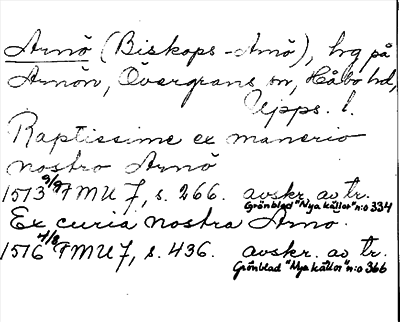 Arnö (Biskops-Arnö), hg på
Arnön, Övergrans sn, Håbo hd,
Upps. l.
Raptissime ex manerio
nostro Arnö
1513 9/9 FMU 7, s. 266. avskr. av tr.
Grönblad "Nya källor" n:o 334
Ex curia nostra Arno.
1516 4/8 FMU 7, s. 436. avskr. av tr.
Grönblad "Nya källor" n:o 366